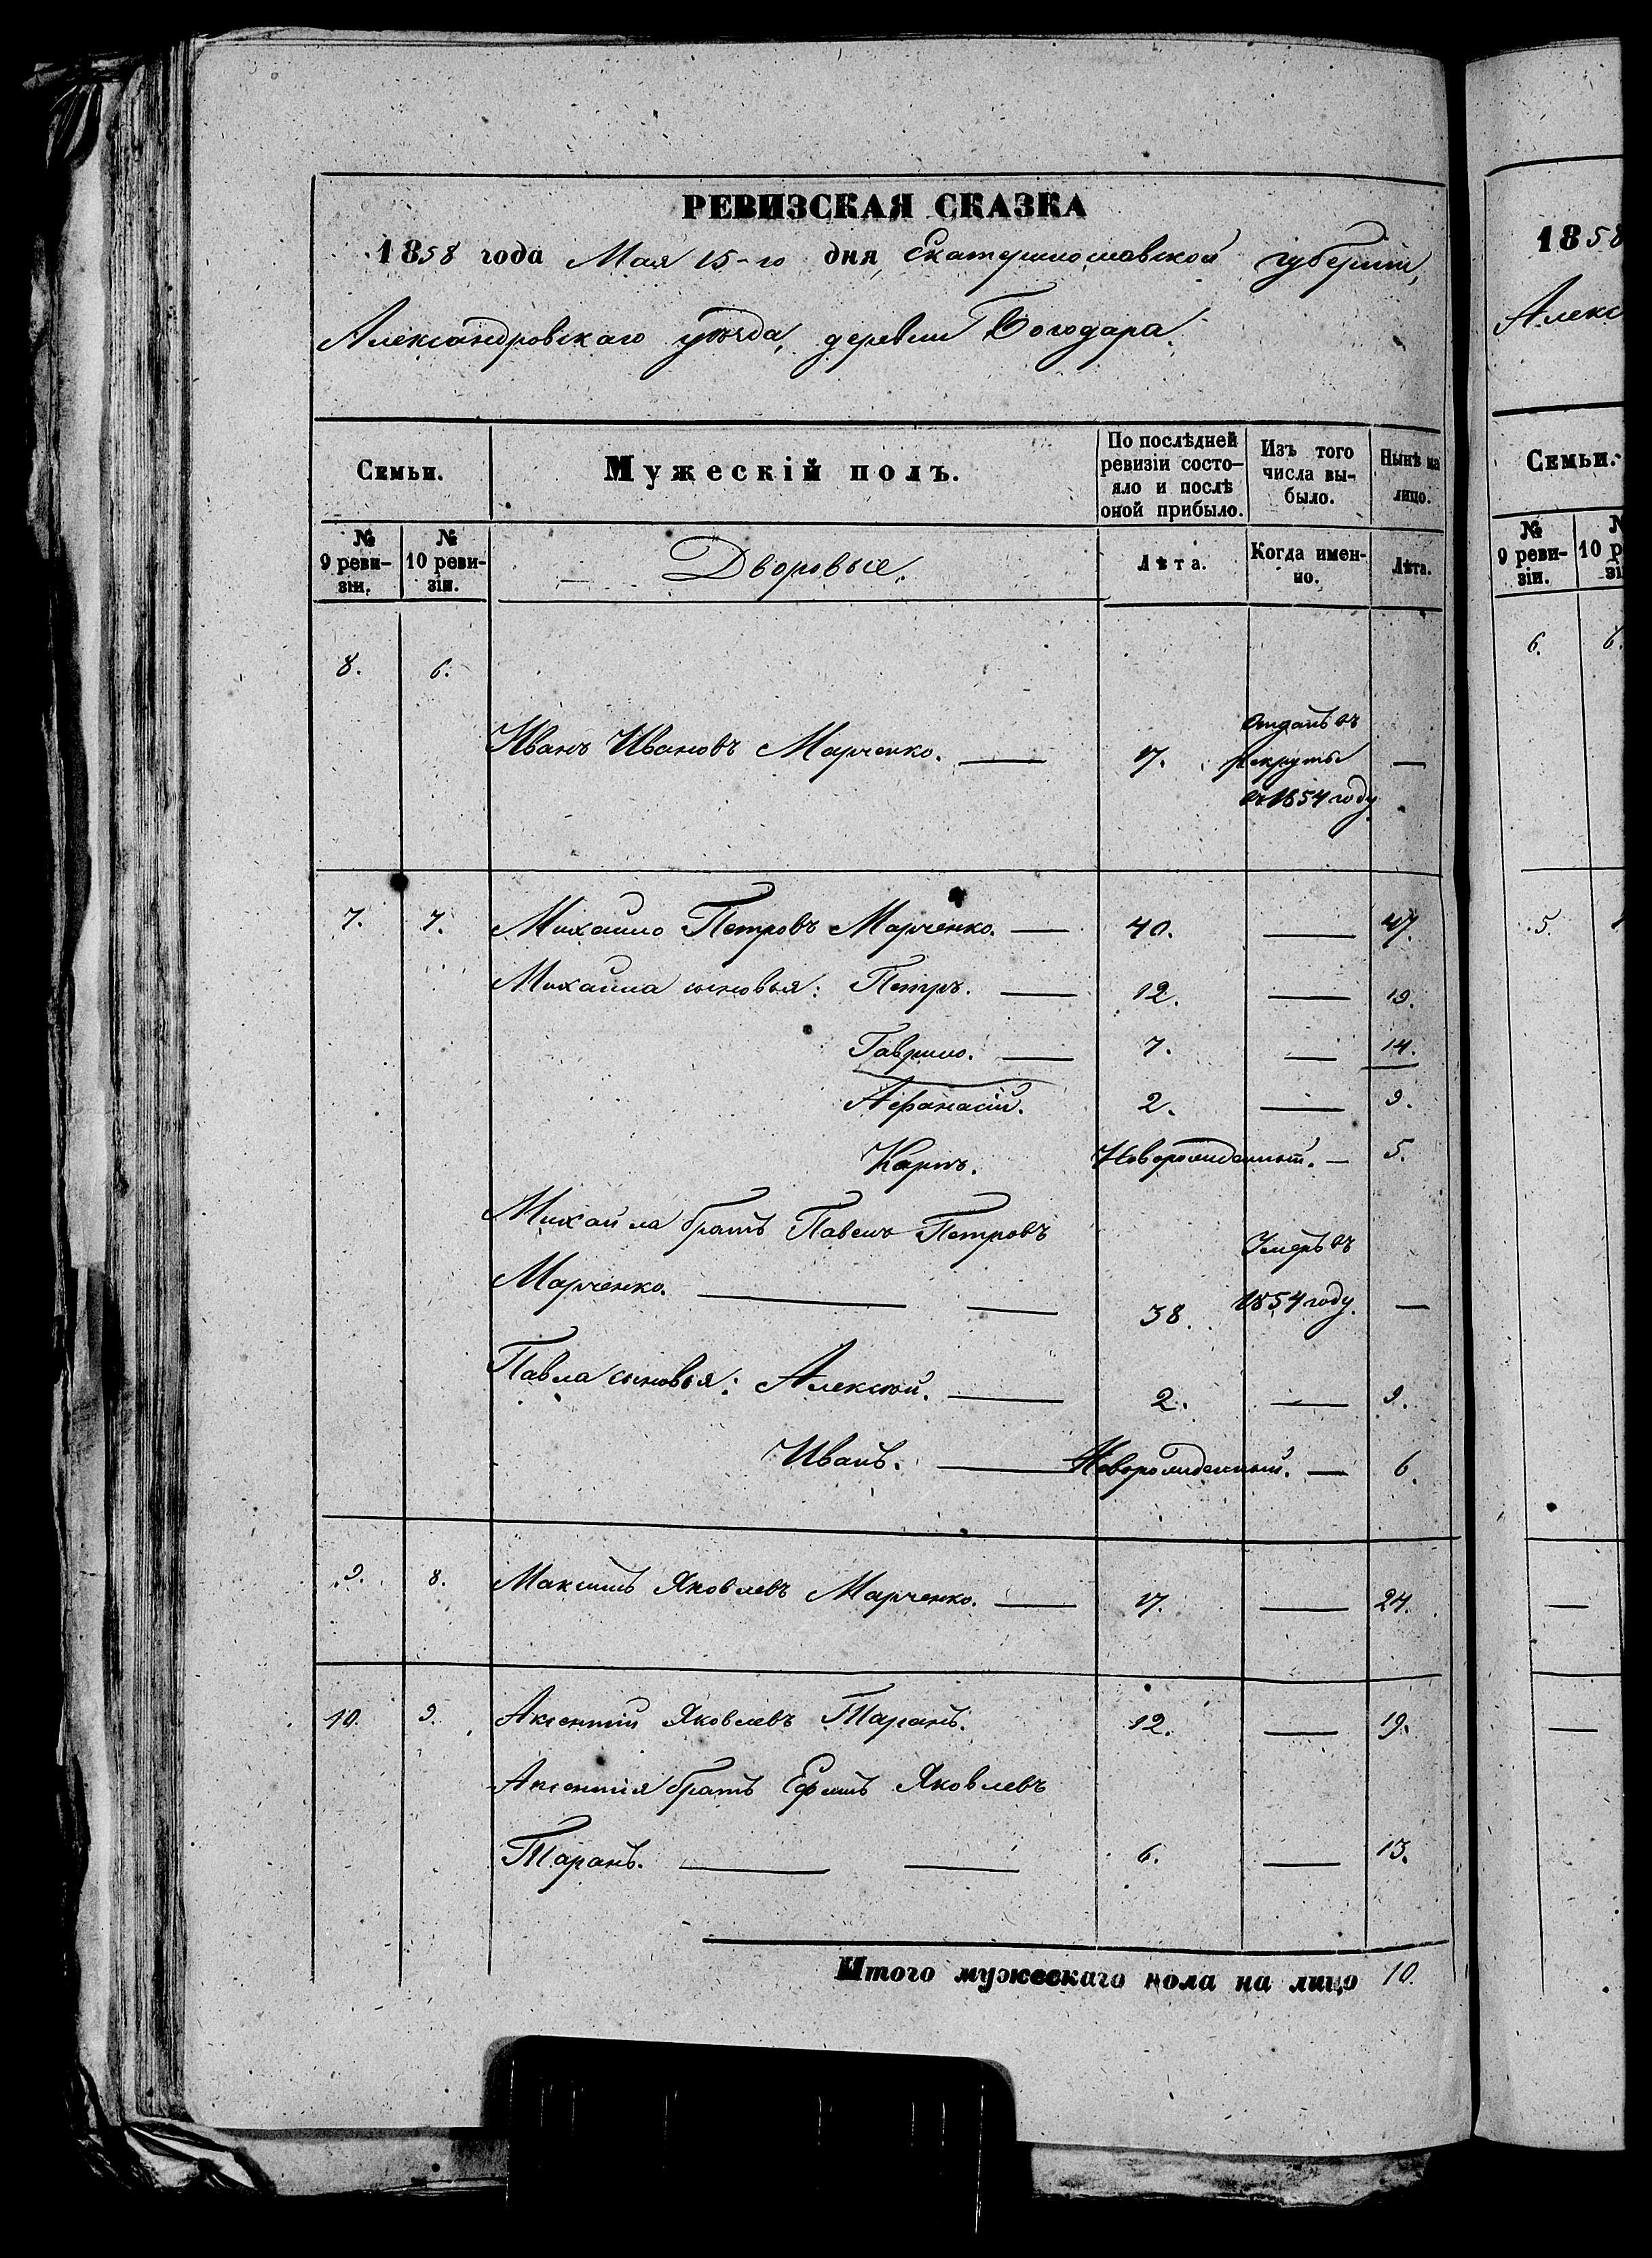 РЕВИЗСКАЯ СКАЗКА
1858 года Мая 15-го дня Екатеринославской губернии,
Александровскаго уѣзда, деревни Богодара.
Семьи.
Мужескій полъ.
По послѣдней
ревизіи состо-
яло и послѣ
оной прибыло.
Изъ того
числа вы-
было.
Нынѣ на
лицо.
№
9 реви-
зіи.
№
10 реви-
зіи.
Дворовые.
Лѣта.
Когда имен-
но.
Лѣта.
8. 6.
Иванъ Ивановъ Марченко. — 17. Отданъ въ
рекруты —
въ 1854 году.
7. 7. Михайло Петровъ Марченко. — 40. — 47.
Михайла сыновья: Петръ. — 12. — 19.
Гаврило. — 7. — 14.
Афанасій. 2. — 9.
Карпъ. Новорожденный. — 5.
Михайла братъ Павелъ Петровъ
Марченко. — — 38. Умеръ въ
1854 году. —
Павла сыновья: Алексѣй. — 2. — 9.
Иванъ. — Новорожденный. — 6.
9. 8. Максимъ Яковлевъ Марченко. — 17. — 24.
10. 9. Аксентій Яковлевъ Таранъ. 12. — 19.
Аксентія братъ Ефимъ Яковлевъ
Таранъ. — — 6. — 13.
Итого мужескаго пола на лицо 10.
1858
Алекс
Семьи.
№
9 реви-
зіи.
№
10 р
зі
6. 6.
5.